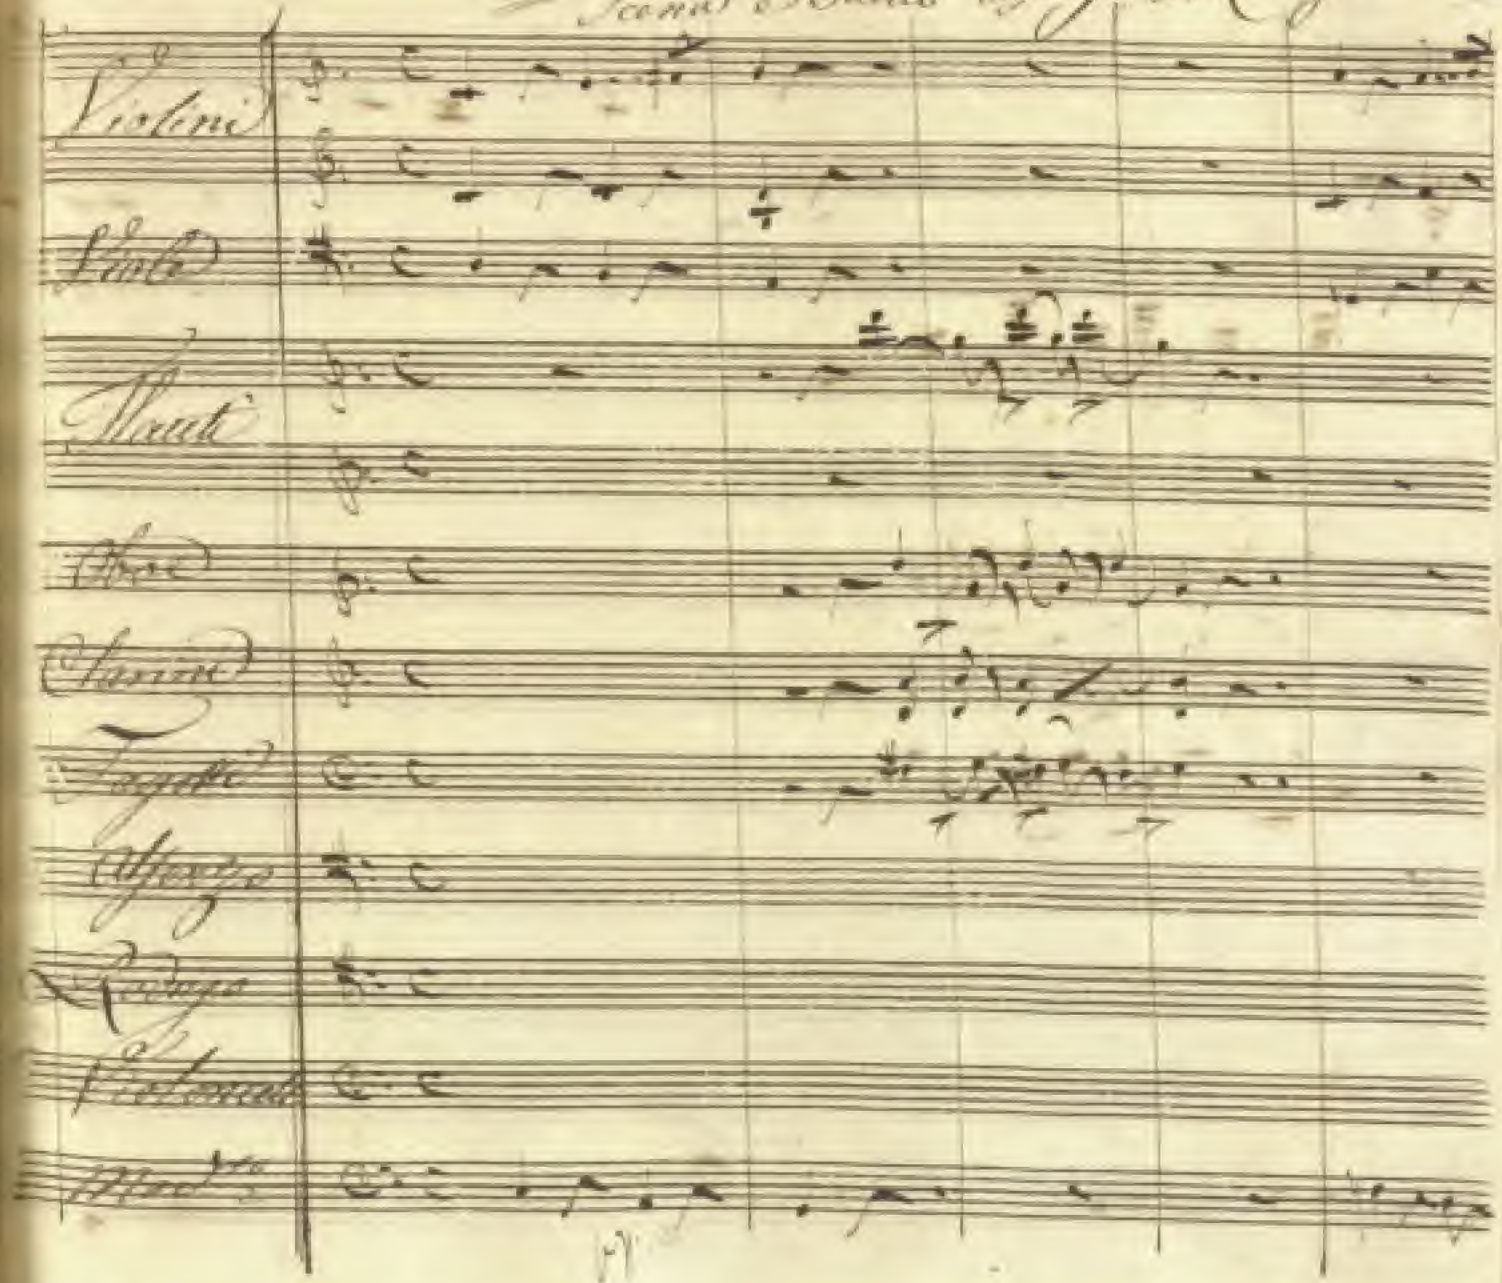 Scena e
Violini
Viole
Flauti
Oboe
Clarini
Fagotti
Alfonzo
Rodrigo
Violoncelli
Mod.to